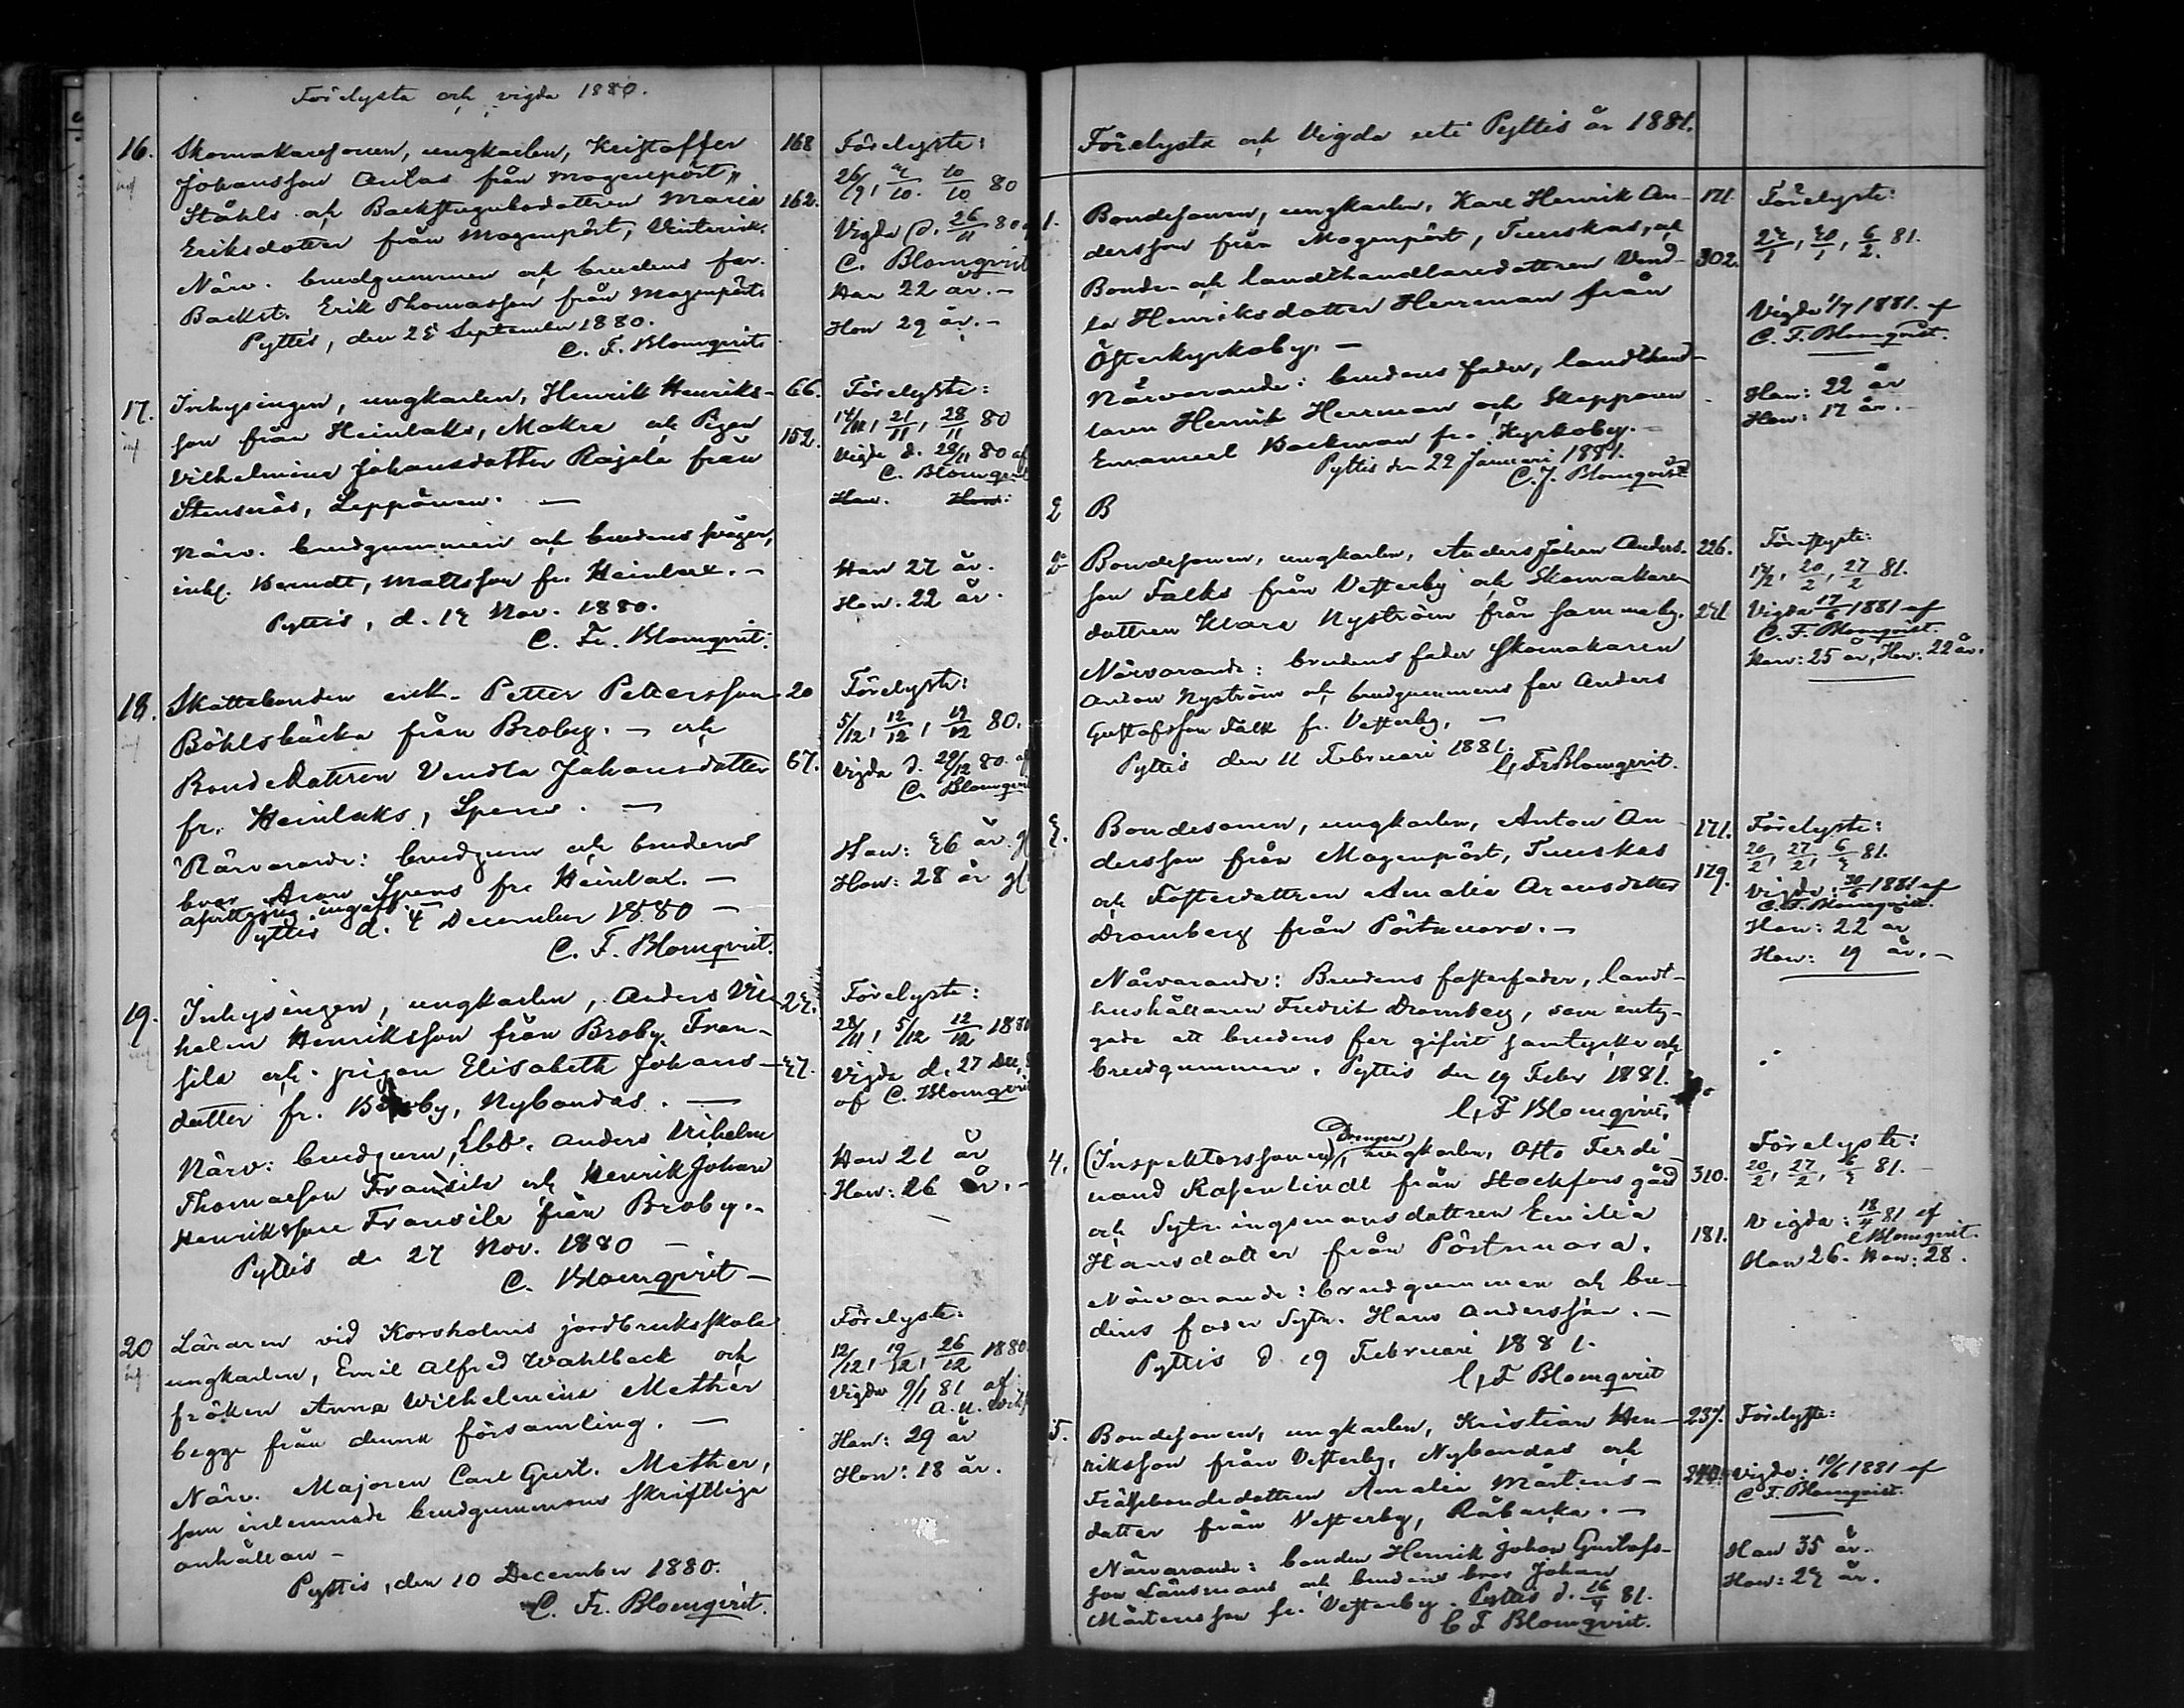 Förelysta och vigda 1880.
16. Skomakaresonen, ungkarlen, Kristoffer 168 Förelyste:
Johansson Antas från Mogenpört,
26/9, /10, 10/10 80
Ståhls och Backstugubodottren Maria 162.
Eriksdotter från Mogenpört,
Vigda d. 26/11 80
Närv. brudgummen och brudens far.
C. Blomqvist
Backst. Erik Thomasson från Mogenpört.
Han 22 år. –
Pyttis, den September 1880.
Hon 29 år. –
C. F. Blomqvist
17. Inhysingen, ungkarlen, Henrik Henriks- 66. Förelyste:
son från Heinlaks, Mokra och Pigan 152. 14/11, 21/11, 28/11 80
Vilhelmina Johansdotter Rajala från
Vigde d. 28/11 80 af
C. Blomqvist
Stensnäs, Leppänen. –
Han. Hon:
Närv. brudgummen och brudens svåger,
inh. Berndt Mattsson fr. Heinlax. –
Han 27 år.
Hon. 22 år.
Pyttis, d. Nov. 1880.
C. Fr. Blomqvist.
18. Skattebonden enkl. Petter Pettersson 20 Förelyste:
Böhlsbäcka från Broby. – och
5/12, 12/12, 19/12 80.
Bondedottren Vendla Johansdotter 67.
Vigda d. 29/12 80. af
C. Blomqvist
fr. Heinlaks, Spens. –
Närvarande: brudgum och brudens
Han: 36 år
bror Aron Spens fr. Heinlax. –
Hon: 28 år
Pyttis d. 4 December 1880 –
C. F. Blomqvist.
19. Inhysingen, ungkarlen, Anders Vil- Förelyste:
helm Henriksson från Broby Fran-
28/11, 5/12 12/12 1880
sila och pigan Elisabeth Johans-
Vigda d. 27 Dec,
dotter fr. Broby, Nybondas. –
af C. Blomqvist
Närv: brudgum, Anders Vilhelm
Han 21 år
Thomasson Fransila och Henrik Johan
Hon: 26 år. –
Henriksson Fransila från Broby. –
Pyttis d. 27 Nov. 1880 –
C. Blomqvist –
20 Läraren vid Korsholms jordbruksskola Förelyste:
ungkarlen, Emil Alfred Wahlbeck och
12/12, 19/12, 26/12 1880.
fröken Anna Wilhelmina Mether
Vigda 9/1 81 af
begge från denna församling. –
Han: 29 år
Närv. Majoren Carl Gust. Mether,
Hon: 18 år.
som inlemnade brudgummens skriftliga
anhållan –
Pyttis, den 10 December 1880.
C. Fr. Blomqvist.
Förelysta och Vigda uti Pyttis år 1881.
1. Bondesonen, ungkarlen, Karl Henrik An- 171. Förelyste:
dersson från Mogenpört, Tuuskas, och
/1, 30/1, 6/2 81.
Bonde- och landthandlaredottren Vend- 302.
la Henriksdotter Herrman från
Vigda 1/7 1881. af
C. F. Blomqvist.
Österkyrkoby. –
Närvarande: brudens fader, landthand-
Han: 22 år
laren Henrik Herrman och Skepparen
Hon: 17 år. –
Emanuel Backman fr. Kyrkoby. –
Pyttis den 22 Januari 1881.
C. F. Blomqvist
2 B
2 Bondesonen, ungkarlen, Anders Johan Anders- 226. Förelyste:
son Falks från Vesterby och Skomakare-
20/2, 27/2 81.
dottren Klara Nyström från samma by. 241
Vigda 17/6 1881 af
C. F. Blomqvist.
Närvarande: brudens fader Skomakaren
Han: 25 år, Hon: 22 år.
Anton Nyström och brudgummens far Anders
Gustafsson Falk fr. Vesterby. –
Pyttis den 11 Februari 1881.
C. Fr Blomqvist.
3. Bondesonen, ungkarlen, Anton An- 171. Förelyste:
dersson från Mogenpört, Tuuskas 179.
20/2, 27/2, 6/3 81.
och Fosterdottren Amalia Aronsdotter
Vigda: 30/6 1881 af
C. F. Blomqvist.
Dromberg från Pörtnuora. –
Han: 22 år
Hon: 19 år. –
Närvarande: Brudens fosterfader, landt-
hushållaren Fredrik Dromberg, som inty-
gade att brudens far gifvit samtycke och
brudgummen. Pyttis den 19 Febr 1881.
C. F Blomqvist.
Drengen
4. (Inspektorssonen), ungkarlen, Otto Ferdi- 310. Förelyste:
nand Rosenlindt från Stockfors gård
20/2, 27/2, 6/3 81. –
och Sytningsmansdottren Emilia 181.
Vigda: 18/4 81 af
C Blomqvist.
Hansdotter från Pörtnuora.
Han 26. Hon: 28.
Närvarande: brudgummen och bru-
dens fader Sytn. Hans Andersson. –
Pyttis d. 19 Februari 1881.
C. F Blomqvist
5. Bondesonen, ungkarlen, Kristian Hen- 237. Förelyste:
riksson från Vesterby, Nybondas och
Vigda: 10/6 1881 af
Frälsebondedottren Amalia Mårtens-
C F. Blomqvist.
dotter från Vesterby, Råbacka. –
Närvarande: bonden Henrik Johan Gustafs-
Han 35 år.
son Länsmans och brudens bror Johan
Hon: år.
Mårtensson fr. Vesterby. Pyttis d. 16/4 81.
C F Blomqvist.